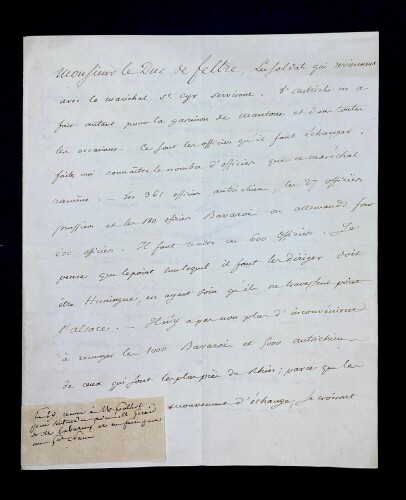 Monsieur le Duc de feltre, Les soldats qui reviennent
avec le maréchal St. Cyr serviront. L'autriche en a
fait autant pour la garnison de mantoue et dans toutes
les occasions. Ce sont les officiers qu'il faut échanger.
faites moi connaître le nombre d'officiers que ce maréchal
ramène. — Les 361 officiers autrichiens, les 27 officiers
prussiens et les 180 officiers Bavarois ou allemands font
600 officiers. Il faut rendre ces 600 officiers. Je
pense que le point sur lequel il faut les diriger doit
être Huningue, en ayant soin qu'ils ne traversent point
l'alsace. — Il n'y a pas non plus d'inconvénient
à renvoyer les 1000 Bavarois et 5000 autrichiens
de ceux qui sont les plus près du Rhin; parce que le
mouvement d'échange, se croisant